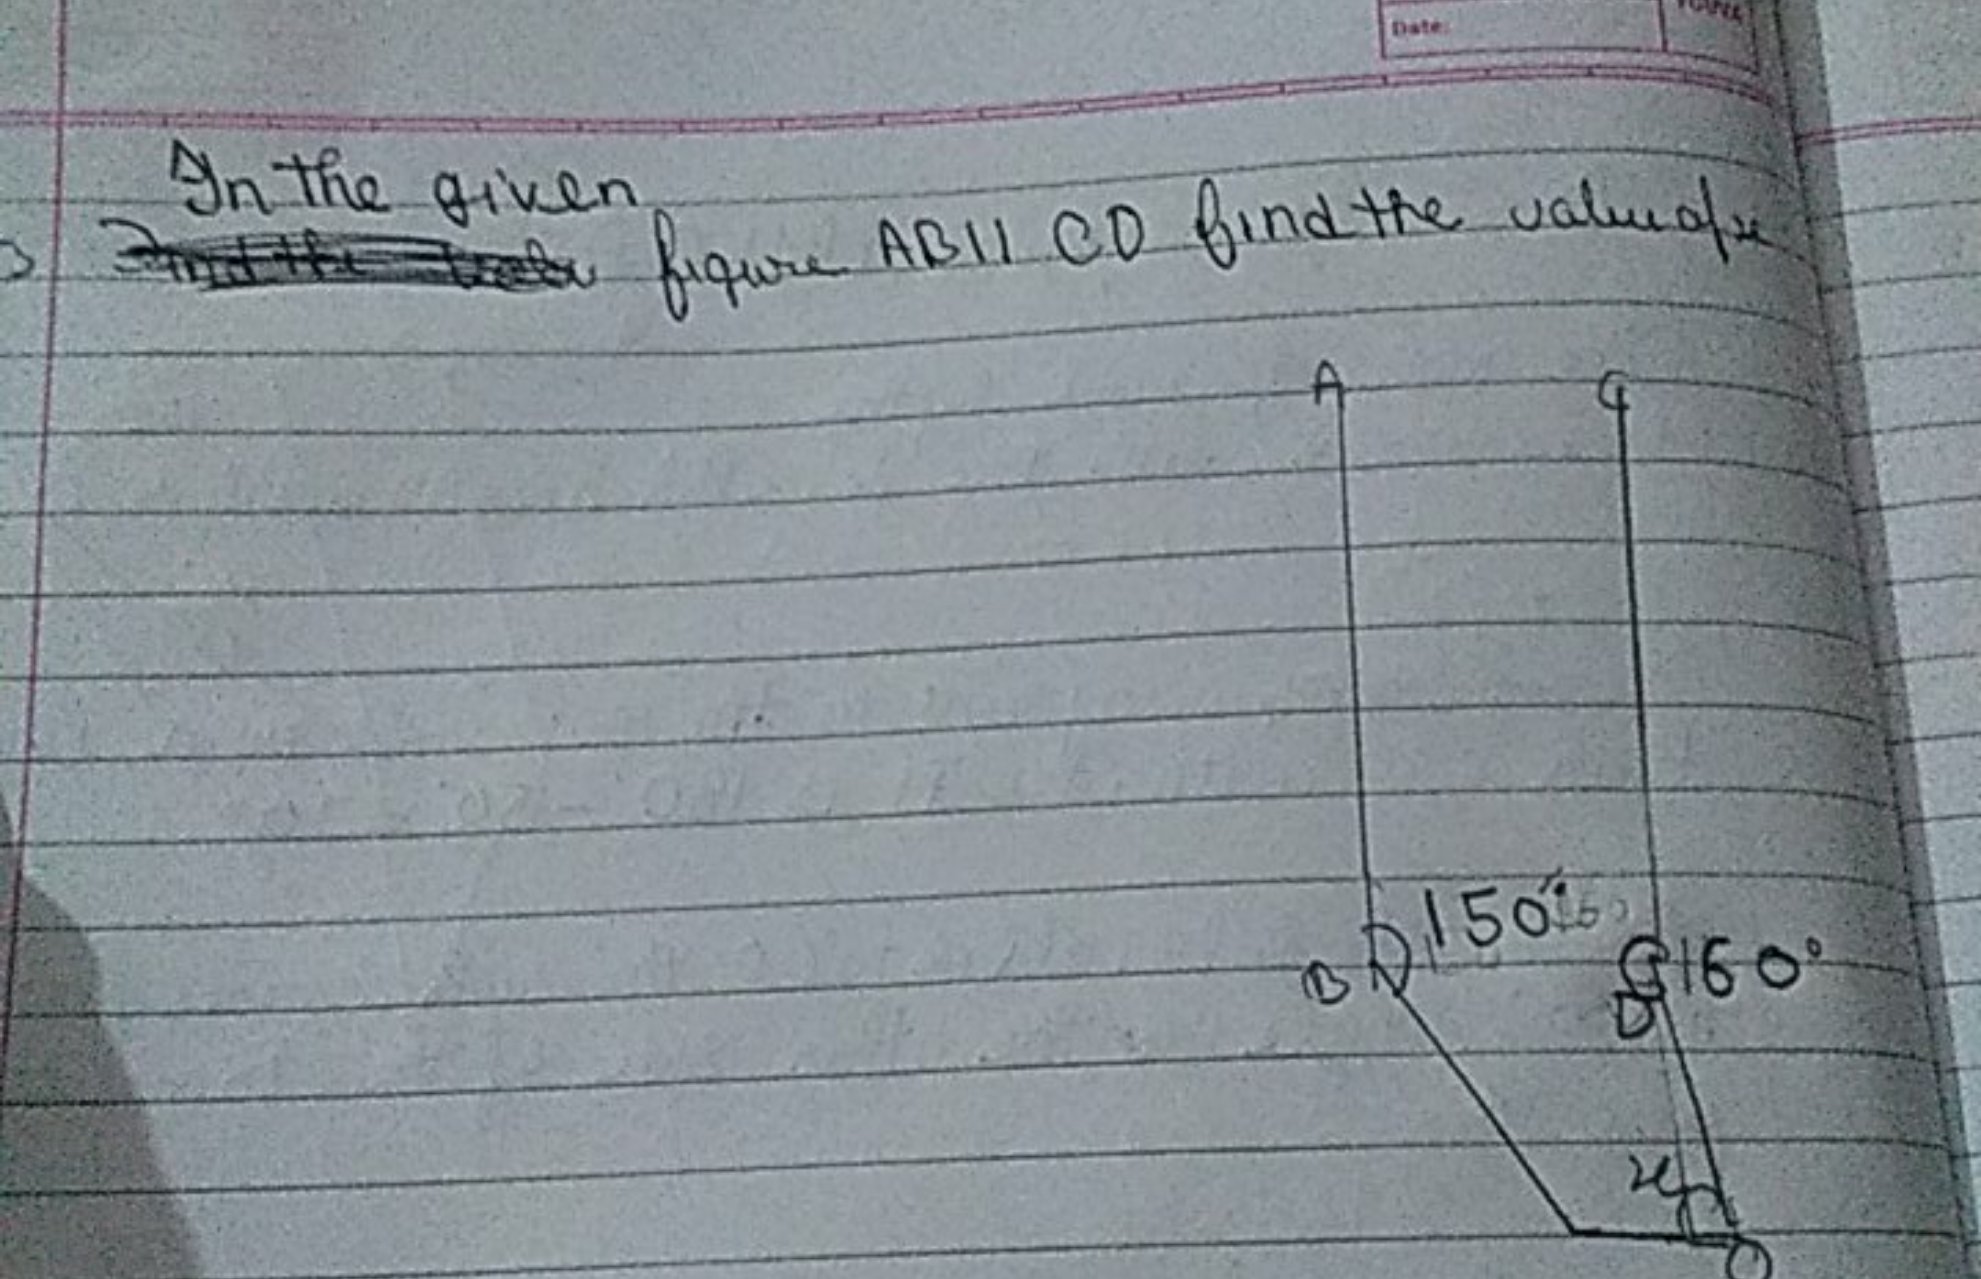 Date:
In the given
figure AB11 CD find the value of x
A
C
150°
B
160°
D
x
O